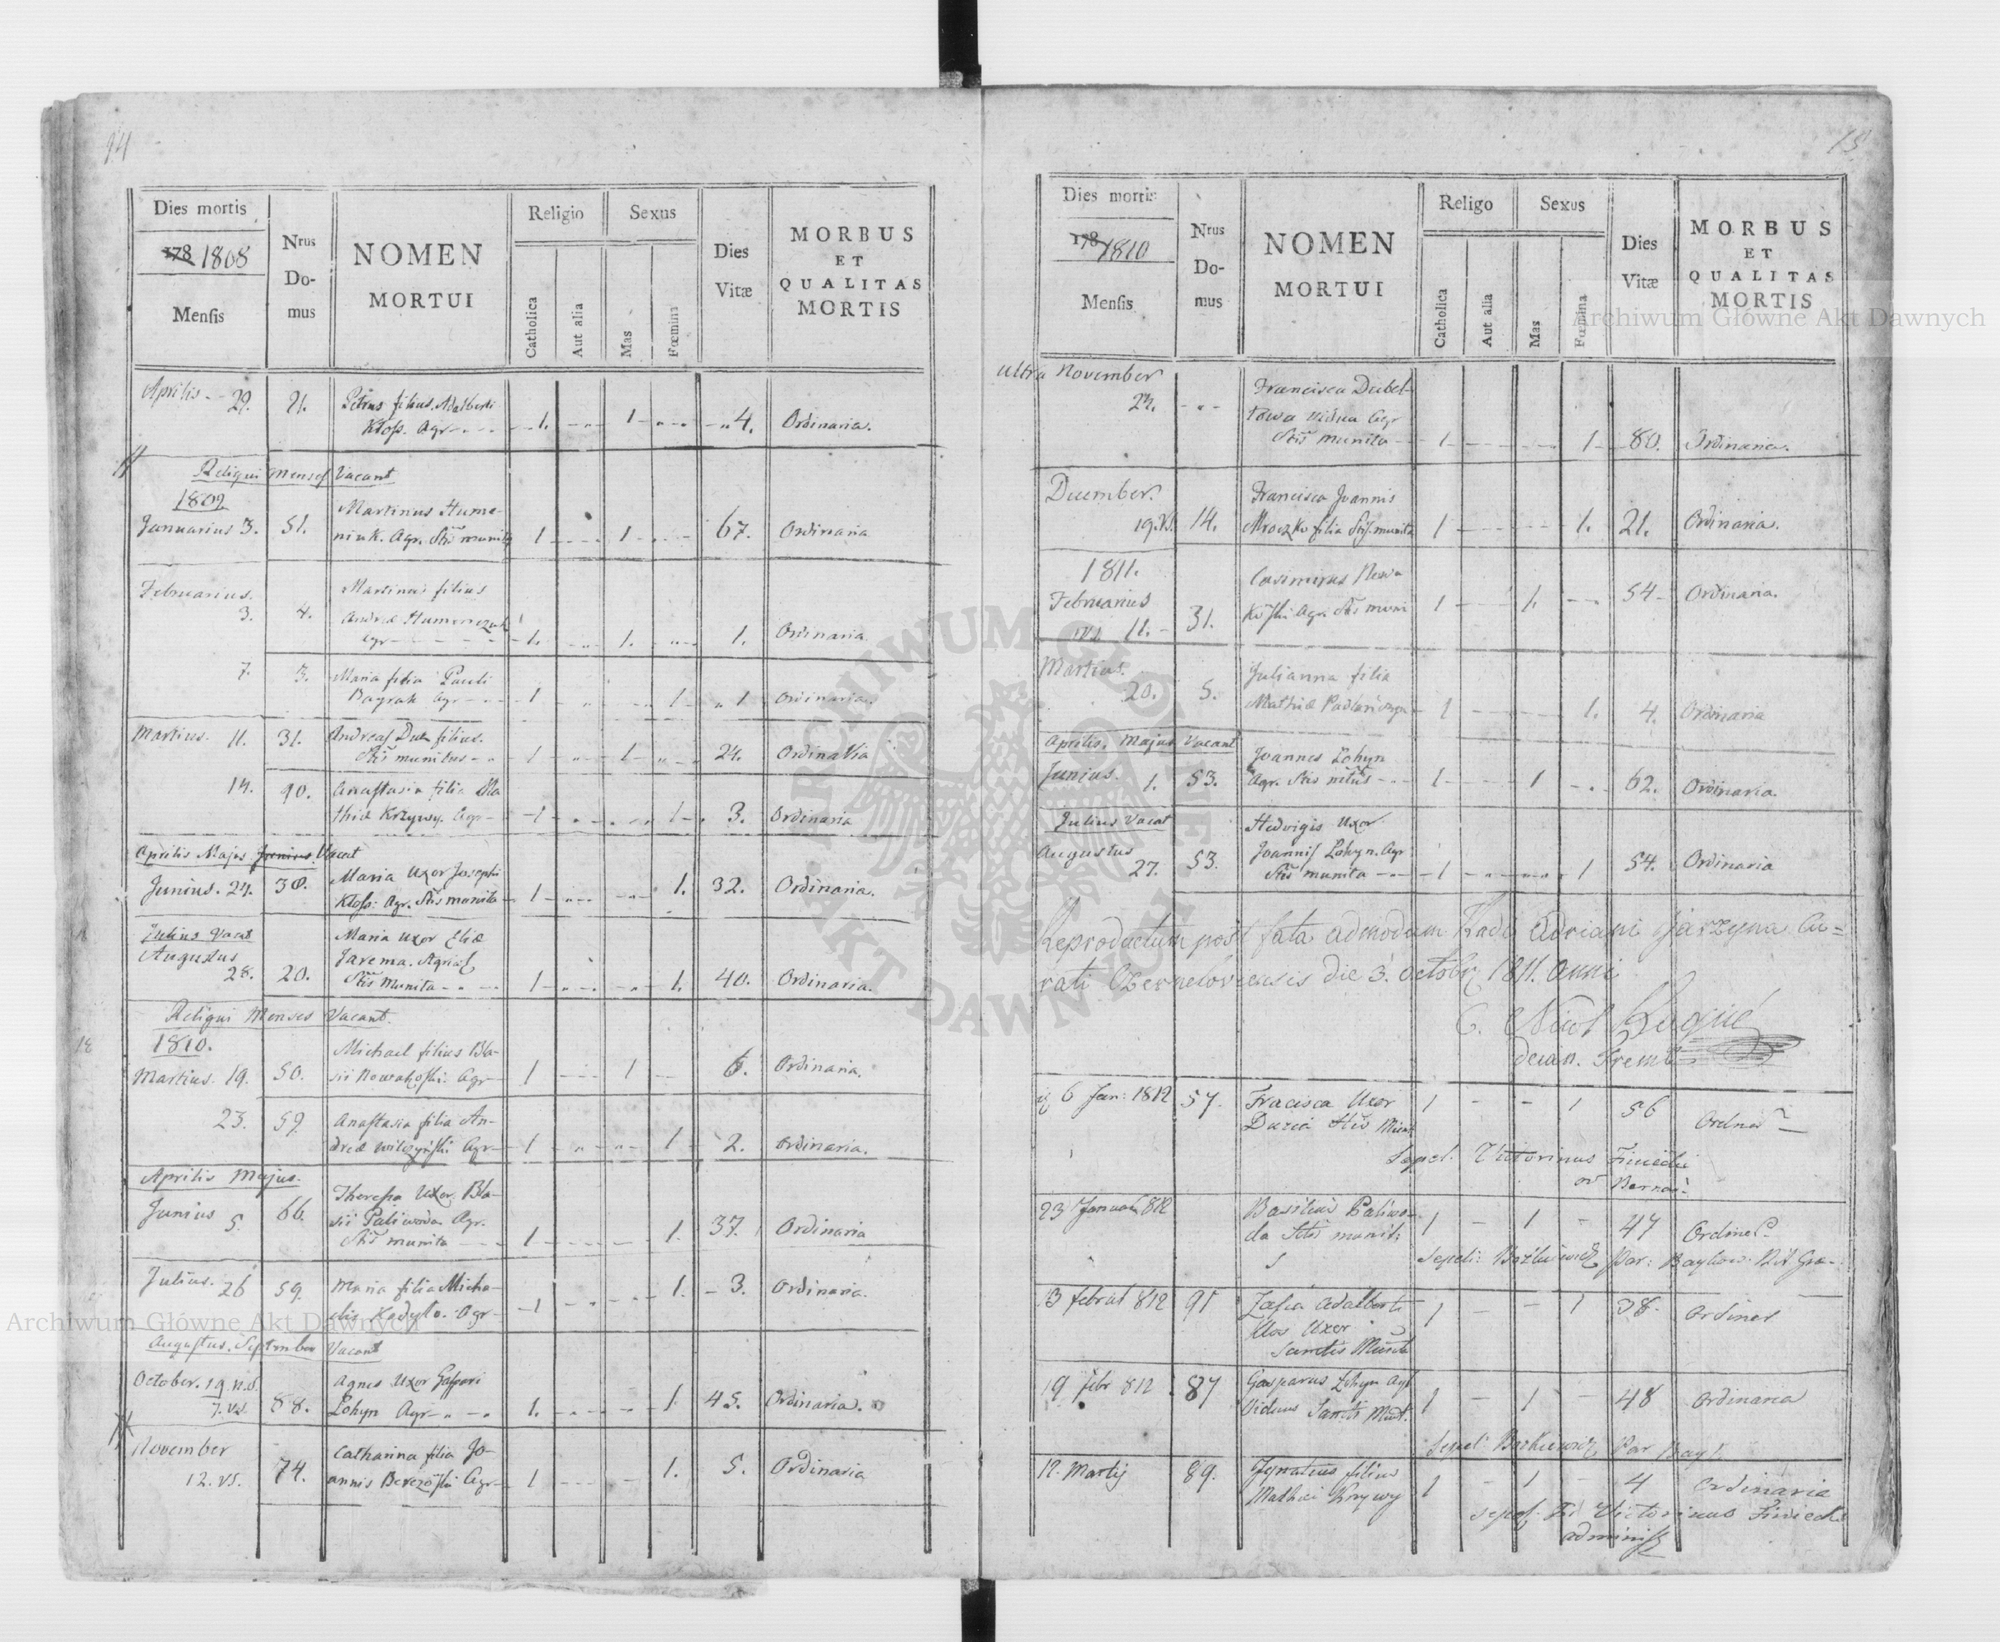 94
Dies mortis
178 1808
Mensis
Nrus
Do-
mus
NOMEN
MORTUI
Religio
Catholica
Aut alia
Sexus
Mas
Fœmina
Dies
Vitæ
MORBUS
ET
QUALITAS
MORTIS
Aprilis - 29. 91. Petrus filius Adalberti
Kłoss. Agr - - 1. - 1 - 4. Ordinaria.
Reliqui Menses Vacant
1809.
Januarius 3. 51. Martinus Hume-
niuk. Agr. Stis munitus 1 - 1 - 67. Ordinaria
Februarius. Martinus filius
3. 4. Andreæ Humeniczuk
agr - 1. - 1. - 1. Ordinaria
7. 3. Maria filia Pauli
Bayrak Agr - 1 - 1 - 1 Ordinaria
Martius. 11. 31. Andreas Duda filius.
Stis munitus - 1 - 1 - 24. Ordinaria
14. 90. Anastasia filia Ma
thiæ Krzywy. Agr - 1 - 1 - 3. Ordinaria
Aprilis Majus Junius Vacat
Junius. 24. 38. Maria Uxor Josephi
Kłoss: Agr. Stis munita 1 - 1. 32. Ordinaria.
Julius Vacat Maria uxor Eliæ
Augustus Jarema. Agricol
28. 20. Stis Munita - 1 - 1. 40. Ordinaria.
Reliqui Menses Vacant.
1810. Michael filius Bla-
Martius. 19. 50. sii Nowakoski. Agr - 1 - 1 - 6. Ordinaria.
23. 59. Anastasia filia An-
dreæ Wilczyński Agr - 1 - 1 - 2. Ordinaria.
Aprilis Majus.
Junius 5. 66. Theressa Uxor Bla-
sii Paliwoda Agr.
Stis munita - 1 - 1. 37. Ordinaria
Julius. 26 59. Maria filia Micha-
elis Kadyło. Agr - 1 - 1. - 3. Ordinaria.
Augustus, September Vacant
October. 19. n.s. Agnes Uxor Gaspari
7. v.s. 88. Łohyn Agr - 1. - 1. 45. Ordinaria.
November Catharina filia Jo-
12. v.s. 74. annis Berezoski Agr - 1 - 1. 5. Ordinaria
15
Dies mortis
178 1810
Mensis
Nrus
Do-
mus
NOMEN
MORTUI
Religo
Catholica
Aut alia
Sexus
Mas
Fœmina
Dies
Vitæ
MORBUS
ET
QUALITAS
MORTIS
ultra November Francisca Dubel-
24. - towa vidua Agr
Stis munita - 1 - 1 - 80. Ordinaria.
December. Francisca Joannis
19. v.s. 14. Mroczko filia Stis. munita 1 - 1. 21. Ordinaria.
1811. Casimirus Nowa
Februarius koski Agr. Stis muni 1 - 1. - 54 - Ordinaria.
v.s. 11. - 31.
Martius. Julianna filia
20. 5. Mathiæ 1 - 1. 4. Ordinaria
Aprilis, Majus Vacant
Junius. 1. 53. Joannes Łohyn
Agr. Stis - 1 - 1 - 62. Ordinaria.
Julius Vacat Hedvigis Uxor
Augustus Joannis Łohyn. Agr
27. 53. Stis munita - 1 - 1 54. Ordinaria
Reproductum post fata admodum Rndi Adriani Jarzyna Cu=
rati die 3. octobr 1811. anni
decan.
6 Jan: 1812 57. Fracisca Uxor 1 - - 1 56
Sepel. Victorinus
Bernar:
23 Januar 812 Basilius Paliwo-
da Stis munit: 1 - 1 - 47
Sepeli: Par:
13 februar 812 91 Zofia Adalberti 1 - - 1 38.
Klos Uxor
Sanctis Munita
19 febr 812 87 Gasparus Łohyn Agr 1 - 1 - 48 Ordinaria
Viduus
Sepel: Par Bayk
12. Martij 89. Ignatius filius 1 - 1 - 4 Ordinaria
Mathei Krzywy
sepel: Victorinus
administ
Archiwum Główne Akt Dawnych
Archiwum Główne Akt Dawnych
ARCHIWUM GŁÓWNE
AKT DAWNYCH